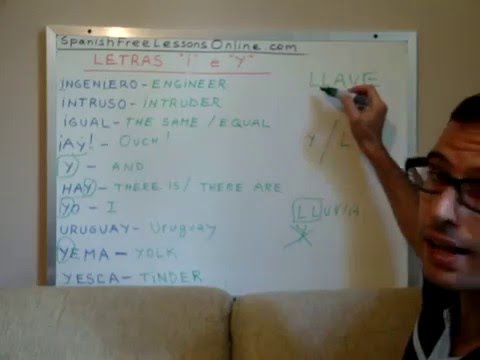 SpanishFreeLessonsOnline.com
LETRAS "i" e "Y"
INGENIERO - ENGINEER
INTRUSO - INTRUDER
IGUAL - THE SAME / EQUAL
¡AY! - OUCH!
Y - AND
HAY - THERE IS / THERE ARE
YO - I
URUGUAY - Uruguay
YEMA - YOLK
YESCA - TINDER
LLAVE
Y / L
LLUVIA
Y